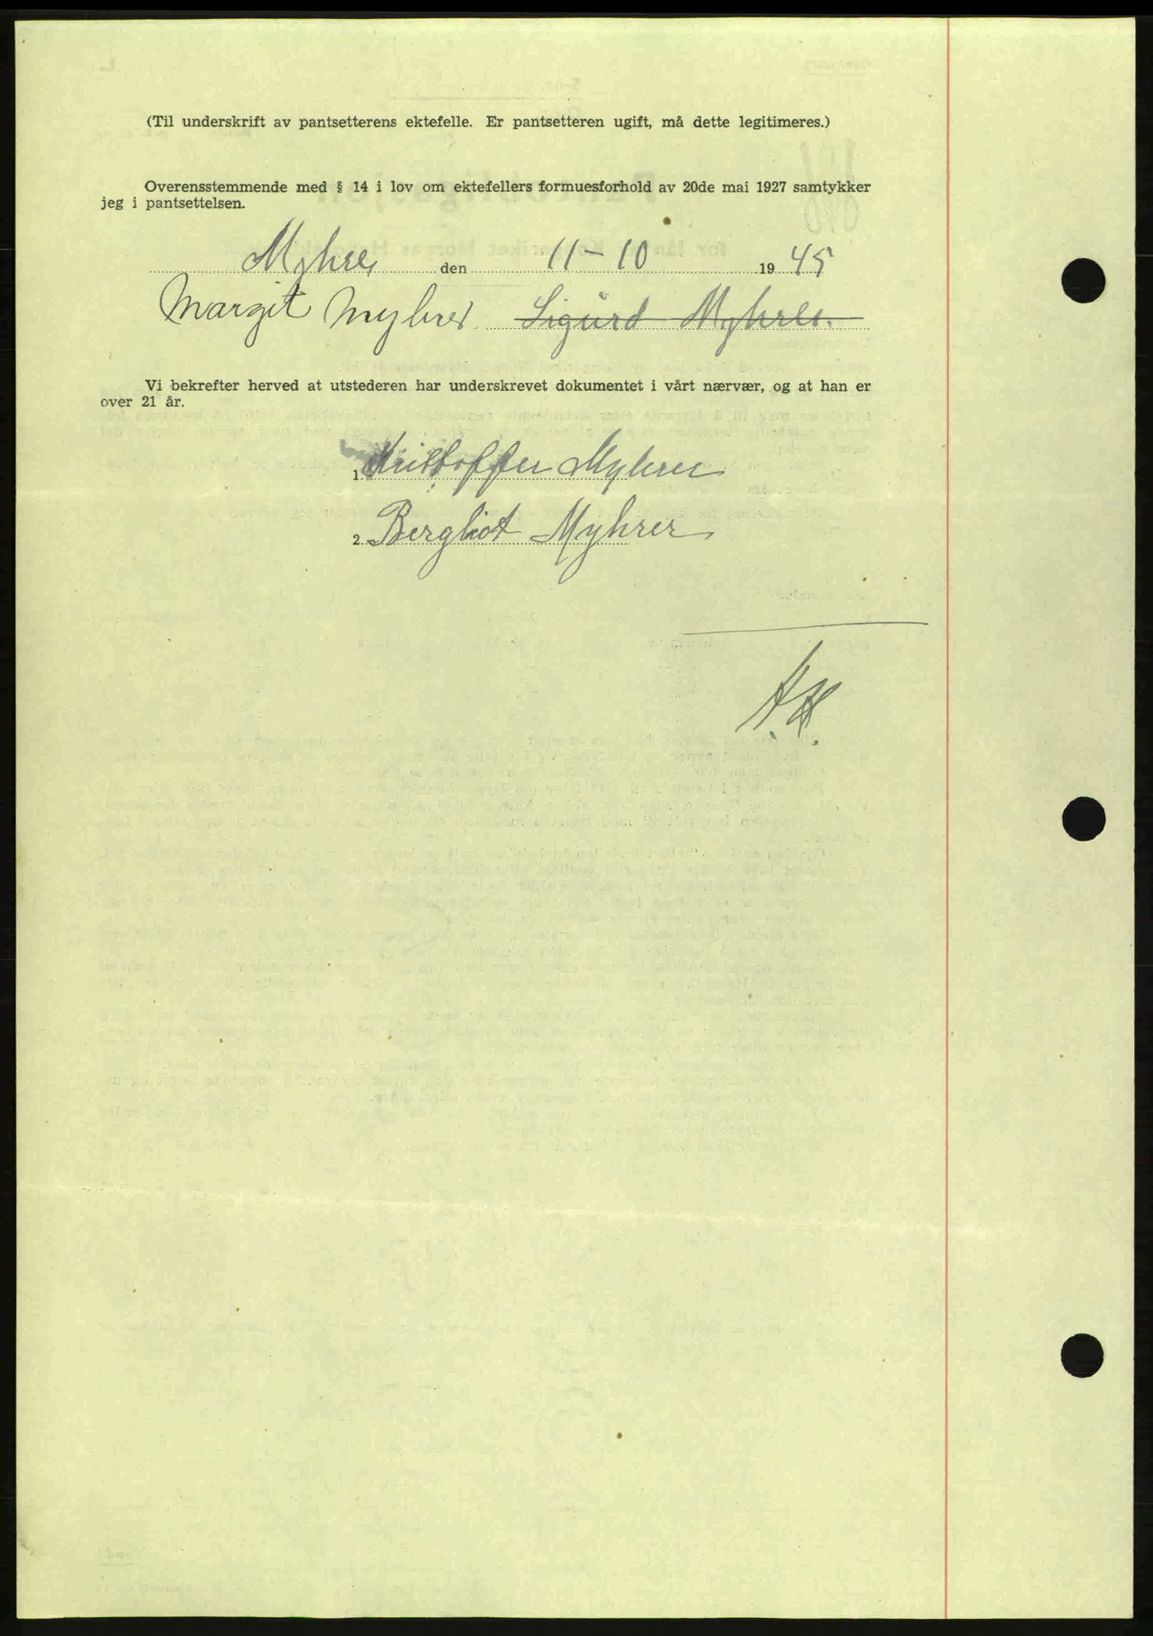 (Til underskrift av pantsetterens ektefelle. Er pantsetteren ugift, må dette legitimeres.)
Overensstemmende med § 14 i lov om ektefellers formuesforhold av 20de mai 1927 samtykker
jeg i pantsettelsen.
Myhrer den 11-10 1945
Margit Myhrer Sigurd Myhrer.
Vi bekrefter herved at utstederen har underskrevet dokumentet i vårt nærvær, og at han er
over 21 år.
1. Kristoffer Myhrer
2. Bergliot Myhrer